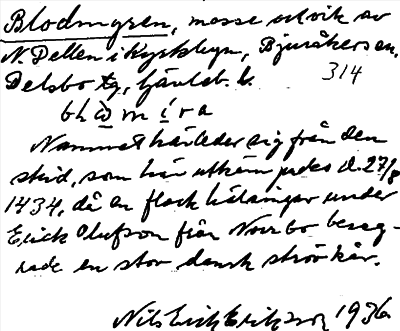 Blodmyren, mosse ut vik av
N. Dellen i Kyrkbyn, Bjuråkers sn,
Delsbo tg, Gävleb. l.
314
Namnet härleder sig från den
strid, som här utkämpades d. 27/8
1434, då en flock hälsingar under
Erick Olufson från Norrbo beseg-
rade en stor dansk strövkår.
Nils Erick Eriksson 1936